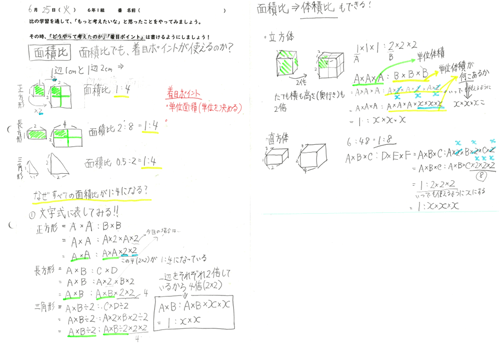 6月25日(火) 6年1組 番 名前(
比の学習を通して、「もっと考えたいな」と思ったことをやってみましょう。
その時、「どうやって考えたのか」「着目ポイント」は書けるようにしましょう！
面積比 面積比でも、着目ポイントが使えるのか？
1辺1cmと1辺2cm ⇒
正方形 面積比 1:4
着目ポイント
・単位面積(単位を決める)
長方形 面積比 2:8=1:4
三角形 面積比 0.5:2=1:4
なぜすべての面積比が1:4になる？
① 文字式に表してみる!!
正方形=A×A:B×B
=A×A:A×2×A×2
=A×A:A×A×2×2
この4(2×2)が1:4になっている
長方形=A×B:C×D
=A×B:A×2×B×2
=A×B:A×B×2×2
4
一辺をそれぞれ2倍しているから4倍(2×2)
三角形=A×B÷2:C×D÷2
=A×B÷2:A×2×B×2÷2
=A×B÷2:A×B÷2×2×2
4
A×B:A×B×x×x
=1:x×x
面積比⇒体積比もできる！
・立方体
1×1×1:2×2×2
A B
単位体積
A×A×A:B×B×B
単位体積が何こあるか
=A×A×A:A×A×A×x×x×x
=1:x×x×x
たても横も高さ(奥行き)も2倍
・直方体
6:48=1:8
A×B×C:D×E×F=A×B×C:A×2×B×2×C×2
=A×B×C:A×B×C×2×2×2
8
=1:2×2×2
=1:x×x×x